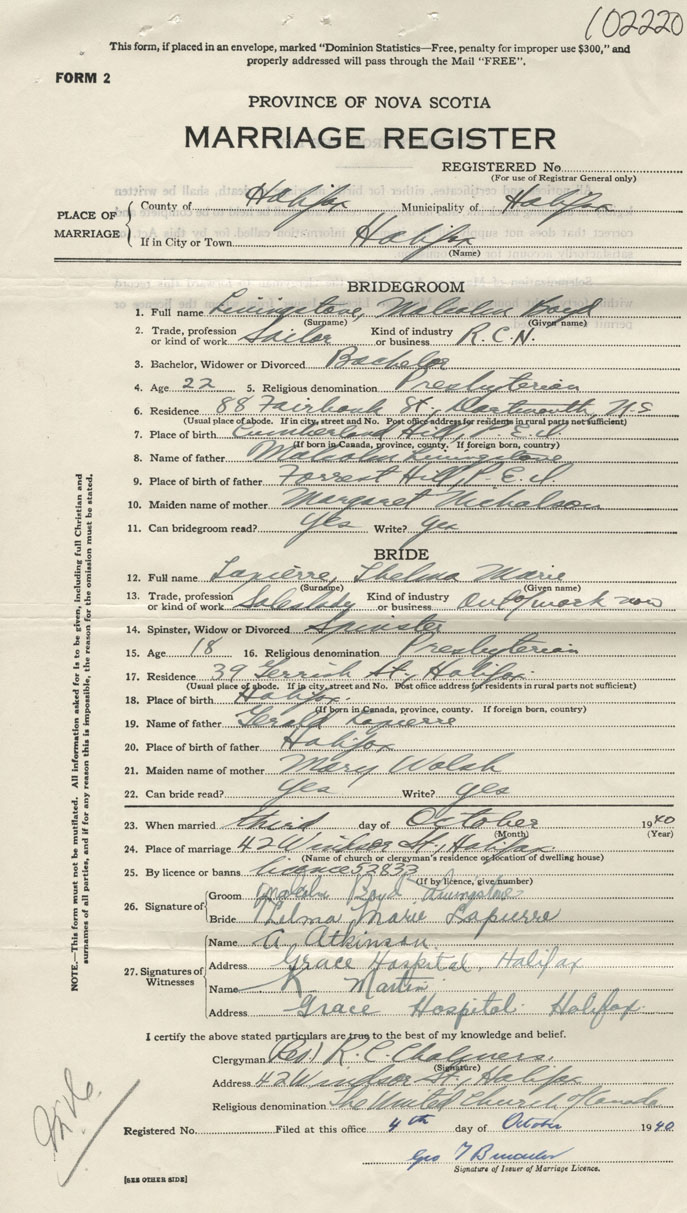 102220
This form, if placed in an envelope, marked "Dominion Statistics—Free, penalty for improper use $300," and
properly addressed will pass through the Mail "FREE".
FORM 2
PROVINCE OF NOVA SCOTIA
MARRIAGE REGISTER
REGISTERED No.
(For use of Registrar General only)
PLACE OF MARRIAGE
County of Halifax Municipality of Halifax
If in City or Town Halifax
(Name)
BRIDEGROOM
1. Full name Livingstone, Malcolm Boyd
(Surname) (Given name)
2. Trade, profession or kind of work Sailor Kind of industry or business R.C.N.
3. Bachelor, Widower or Divorced Bachelor
4. Age 22 5. Religious denomination Presbyterian
6. Residence 88 Fairbank St, Dartmouth, N.S
(Usual place of abode. If in city, street and No. Post office address for residents in rural parts not sufficient)
7. Place of birth Cumberland P.E.I.
(If born in Canada, province, county. If foreign born, country)
8. Name of father Malcolm Livingstone
9. Place of birth of father Forrest Hill, P.E.I.
10. Maiden name of mother Margaret Nicholson
11. Can bridegroom read? Yes Write? yes
BRIDE
12. Full name Lapierre, Thelma Marie
(Surname) (Given name)
13. Trade, profession or kind of work Saleslady Kind of industry or business Out of work now
14. Spinster, Widow or Divorced Spinster
15. Age 18 16. Religious denomination Presbyterian
17. Residence 39 Gerrish St, Halifax
(Usual place of abode. If in city, street and No. Post office address for residents in rural parts not sufficient)
18. Place of birth Halifax
(If born in Canada, province, county. If foreign born, country)
19. Name of father Gerald Lapierre
20. Place of birth of father Halifax
21. Maiden name of mother Mary Walsh
22. Can bride read? yes Write? yes
23. When married third day of October 1940
(Month) (Year)
24. Place of marriage 42 Windsor St., Halifax
(Name of church or clergyman's residence or location of dwelling house)
25. By licence or banns licence 52833
(If by licence, give number)
26. Signature of
Groom Malcolm Boyd Livingstone
Bride Thelma Marie Lapierre
27. Signatures of Witnesses
Name A. Atkinson.
Address Grace Hospital, Halifax
Name K Martin
Address Grace Hospital Halifax.
I certify the above stated particulars are true to the best of my knowledge and belief.
Clergyman (Rev.) R. C. Chalmers.
(Signature)
Address 42 Windsor St., Halifax
Religious denomination The United Church of Canada
Registered No. Filed at this office 4th day of October 1940
Geo T
Signature of Issuer of Marriage Licence.
[SEE OTHER SIDE]
NOTE.—This form must not be mutilated. All information asked for is to be given, including full Christian and
surnames of all parties, and if for any reason this is impossible, the reason for the omission must be stated.